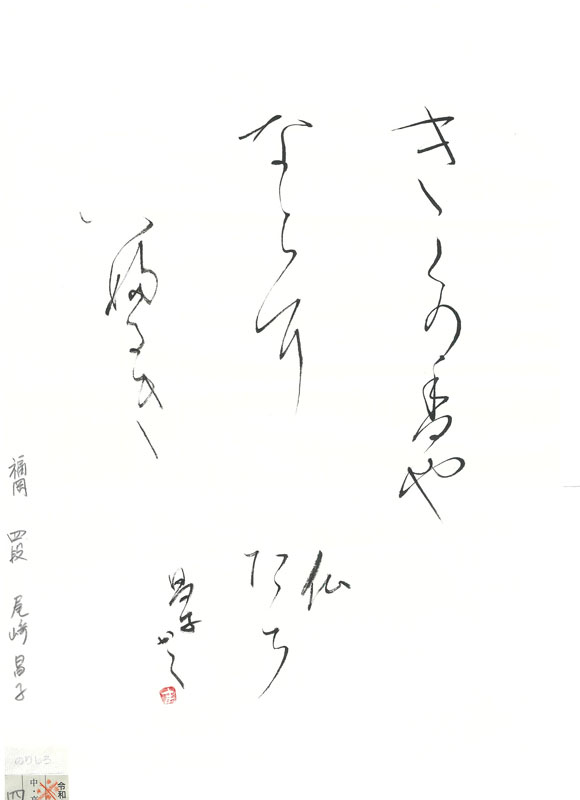 きくの香や
ならには
ふるき
仏
たち
昌子かく
福岡 四段 尾崎昌子
のりしろ
令和
中・高
四